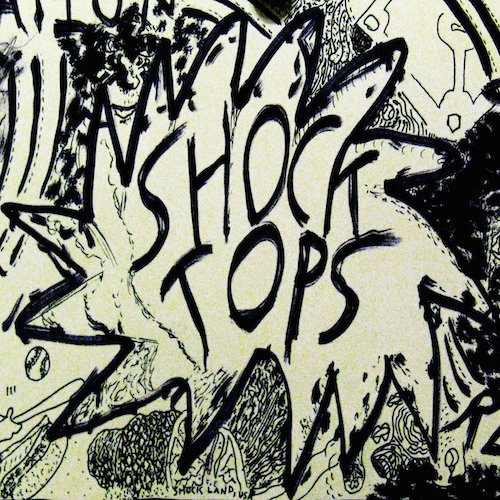 SHOCK
TOPS
SHOCK LAND, US